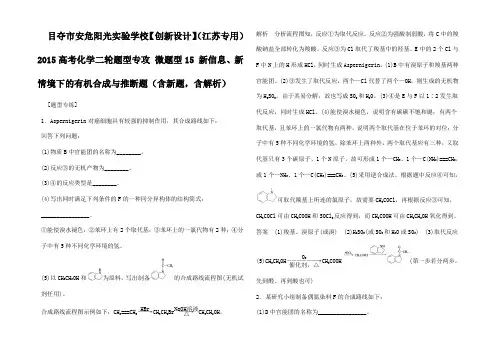 目夺市安危阳光实验学校【创新设计】（江苏专用）
2015高考化学二轮题型专攻 微题型15 新信息、新
情境下的有机合成与推断题（含新题，含解析）
【题型专练】
1．Aspernigerin对癌细胞具有较强的抑制作用，其合成路线如下：
回答下列问题：
(1)物质B中官能团的名称为________。
(2)反应③的无机产物为________。
(3)④的反应类型是________。
(4)写出同时满足下列条件的F的一种同分异构体的结构简式：
________________。
①能使溴水褪色；②苯环上有2个取代基；③苯环上的一氯代物有2种；④分
子中有5种不同化学环境的氢。
(5)以CH₃CH₂OH和为原料，写出制备的合成路线流程图(无机试
剂任用)。
合成路线流程图示例如下：CH₂===CH₂ HBr CH₃CH₂Br NaOH溶液 △ CH₃CH₂OH。
解析 分析流程图知，反应①为取代反应。反应②为强酸制弱酸，将C中的羧
酸钠盐全部转化为羧酸。反应③为Cl取代了羧基中的羟基。E中的2个Cl与
F中N上的H形成HCl，同时生成Aspernigerin。(1)B中有溴原子和羧基两种
官能团。(2)③发生了取代反应，两个—Cl代替了两个—OH。则生成的无机物
为H₂SO₃，由于其易分解，故也写成SO₂和H₂O。(3)④是E与F以1∶2发生取
代反应，同时生成HCl。(4)能使溴水褪色，说明含有碳碳不饱和键；有两个
取代基，且苯环上的一氯代物有两种，说明两个取代基在位于苯环的对位；分
子中有5种不同化学环境的氢，除苯环上两种外，两个取代基应有三种。又取
代基只有3个碳原子、1个N原子，故可形成1个—CH₃、1个—C(NH₂)===CH₂
或1个—NH₂、1个—C(CH₃)===CH₂。(5)采用逆合成法。根据题中反应④可知：
可取代羰基上所连的氯原子。故需要CH₃COCl，再根据反应③可知，
CH₃COCl可由CH₃COOH和SOCl₂反应得到；而CH₃COOH可由CH₃CH₂OH氧化得到。
答案 (1)羧基、溴原子(或溴) (2)H₂SO₃(或SO₂和H₂O或SO₂) (3)取代反应
(5)CH₃CH₂OH O₂ 催化剂，△ CH₃COOH (第一步若分两步，
先到醛、再到酸也可)
2．某研究小组制备偶氮染料F的合成路线如下：
(1)B中官能团的名称为________________。